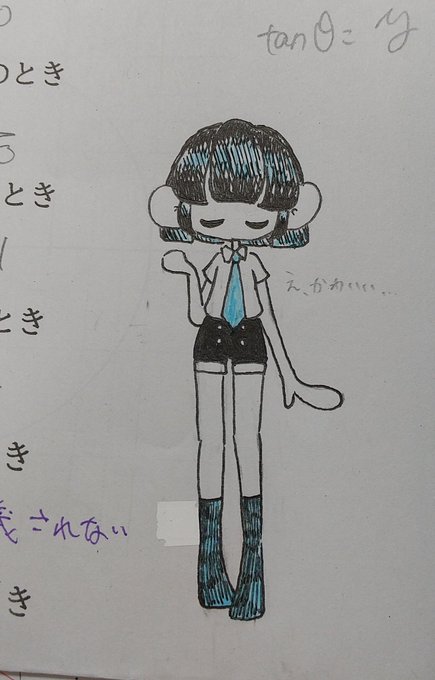 tanθ= y
のとき
とき
え、かわいい...
とき
き
義されない
き